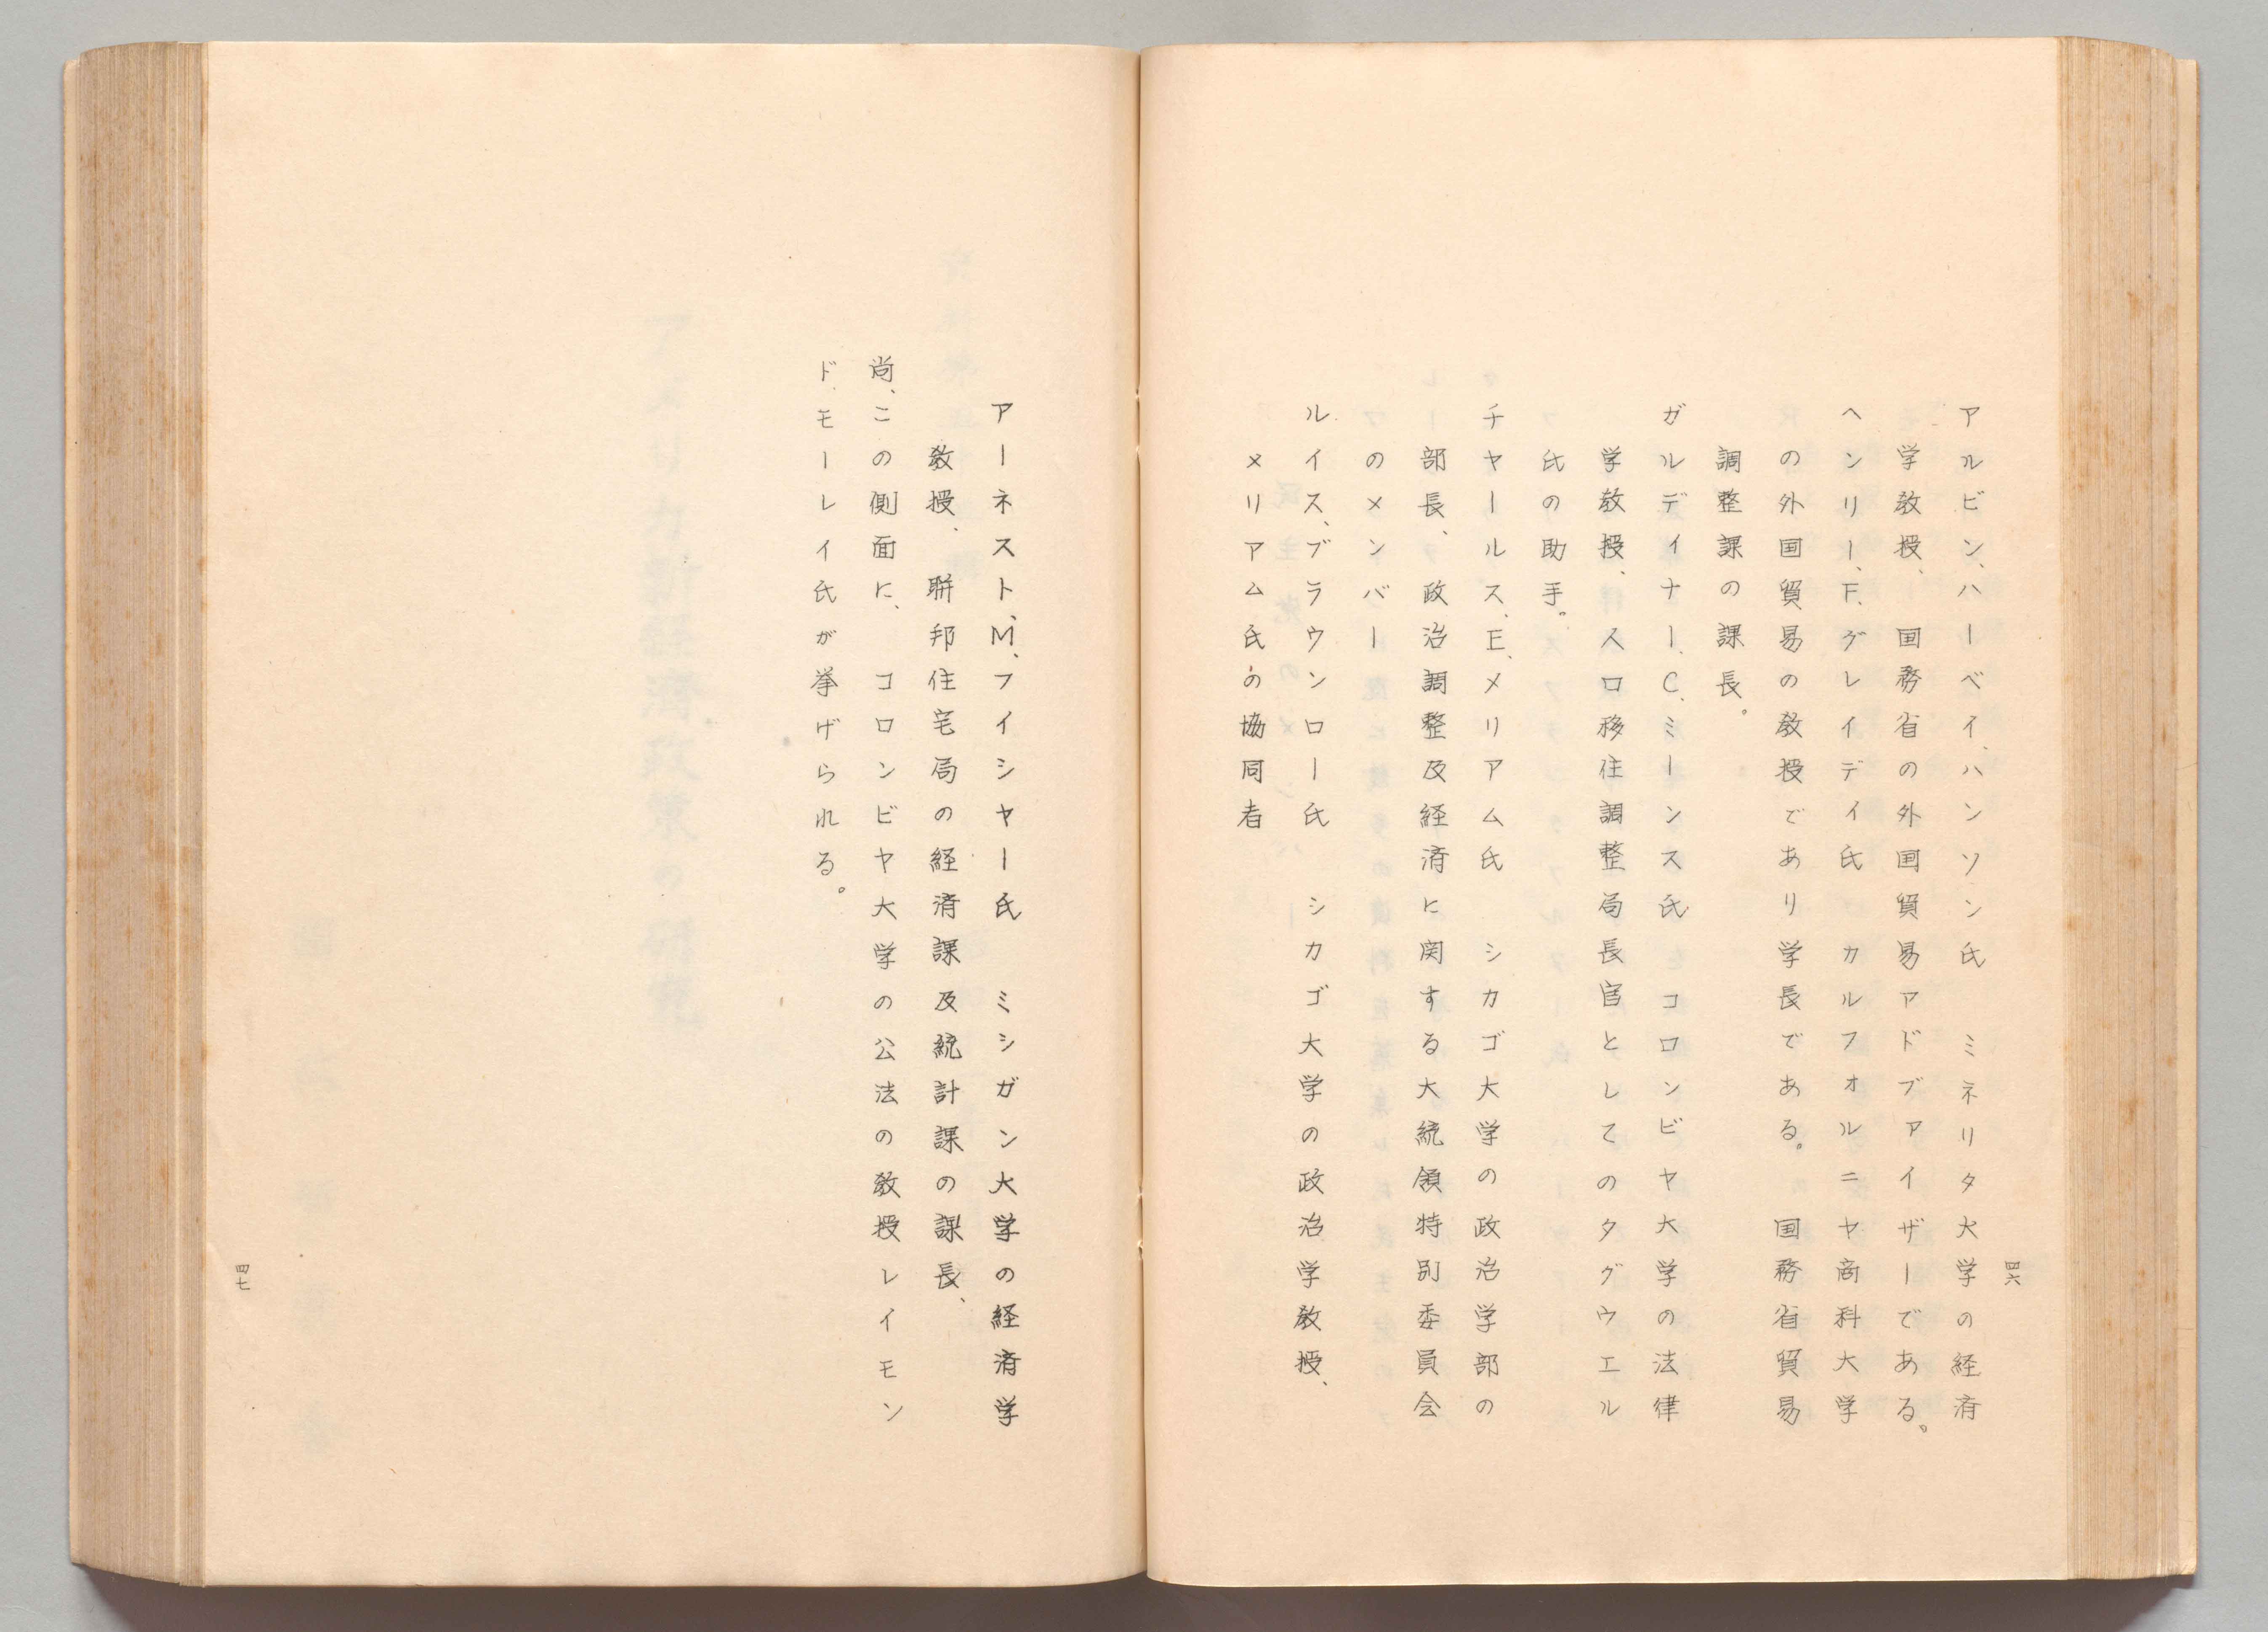 四六
アルビン、ハーベイ、ハンソン氏　ミネリタ大学の経済
学教授、　国務省の外国貿易アドブアイザーである。
ヘンリー、F、グレイデイ氏　カルフオルニヤ商科大学
の外国貿易の教授であり学長である。　国務省貿易
調整課の課長。
ガルデイナー、C、ミーンス氏　コロンビヤ大学の法律
学教授、　人口移住調整局長官としてのタグウエル
氏の助手。
チヤールス、E、メリアム氏　シカゴ大学の政治学部の
部長、　政治調整及経済に関する大統領特別委員会
のメンバー
ルイス、ブラウンロー氏　シカゴ大学の政治学教授、
メリアム氏の協同者
アーネスト、M、フイシヤー氏　ミシガン大学の経済学
教授、　聯邦住宅局の経済課及統計課の課長、
尚、この側面に、　コロンビヤ大学の公法の教授レイモン
ド、モーレイ氏が挙げられる。
四七